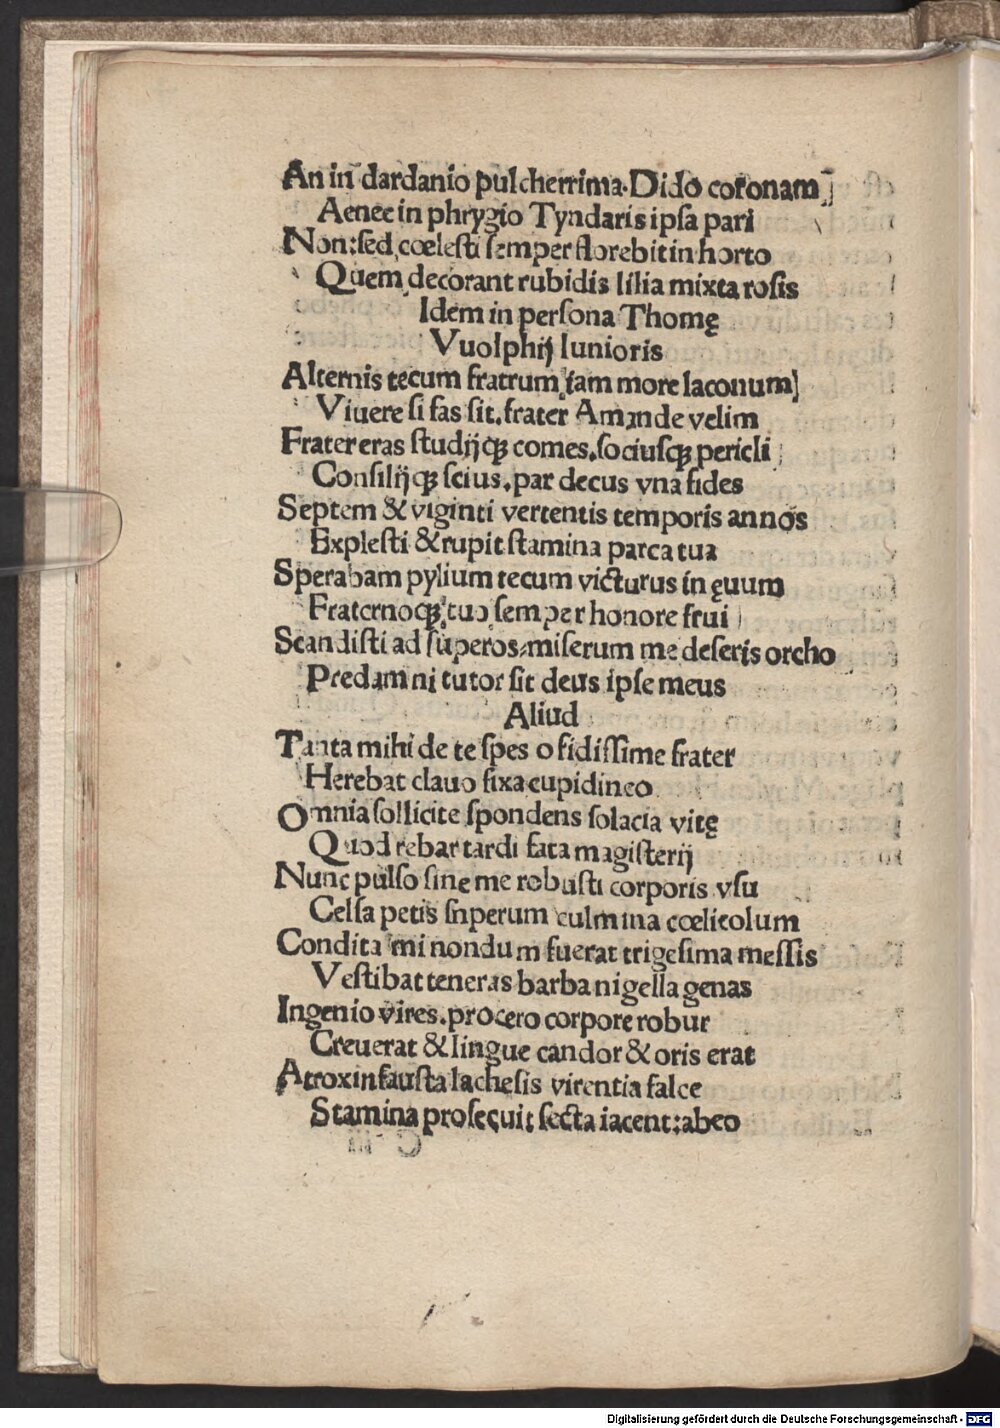 An in̄ dardanio pulcherrima·Dido coronam
Aenee in phrygio Tyndaris ipsa pari
Non:sed cœlesti semper florebit in horto
Quem decorant rubidis lilia mixta rosis
Idem in persona Thomę
Vuolphij Iunioris
Alternis tecum fratrum iam more laconum
Viuere si fas sit.frater Amande velim
Frater eras studijqꝫ comes.sociusqꝫ pericli
Consilijqꝫ scius.par decus vna fides
Septem & viginti vertentis temporis annos
Explesti & rupit stamina parca tua
Sperabam pylium tecum victurus in ęuum
Fraternoqꝫ tuo semper honore frui
Scandisti ad superos:miserum me deseris orcho
Predam ni tutor sit deus ipse meus
Aliud
Tanta mihi de te spes o fidissime frater
Herebat clauo fixa cupidineo
Omnia sollicite spondens solacia vitę
Quod rebar tardi fata magisterij
Nunc pulso sine me robusti corporis vsu
Celsa petis snperum culmina cœlicolum
Condita mi nondum fuerat trigesima messis
Vestibat teneras barba nigella genas
Ingenio vires.procero corpore robur
Creuerat & lingue candor & oris erat
Atrox infausta lachesis virentia falce
Stamina prosecuit secta iacent:abeo
Digitalisierung gefördert durch die Deutsche Forschungsgemeinschaft - DFG